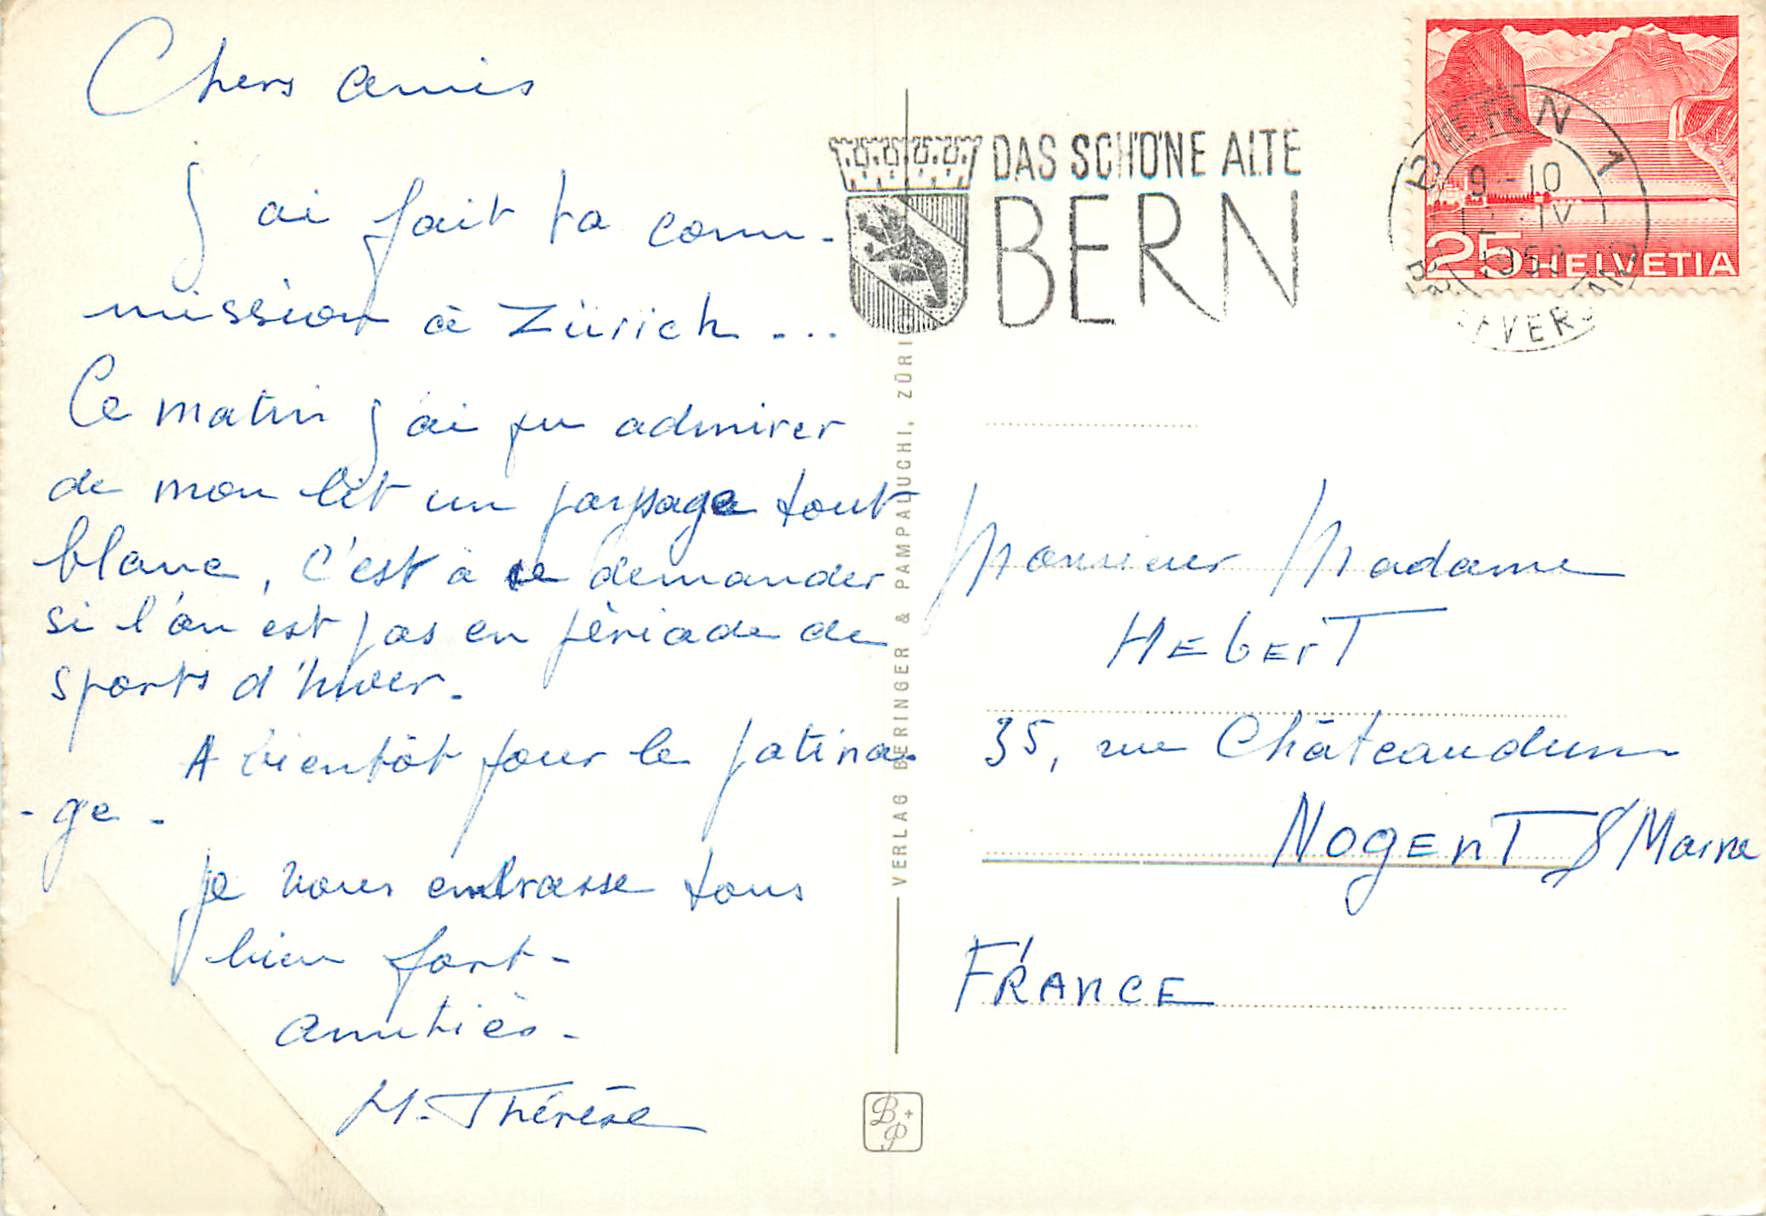 Chers amis
J'ai fait ta com-
mission à Zürich ...
Ce matin j'ai pu admirer
de mon lit un paysage tout
blanc, c'est à se demander
si l'on est pas en période de
sports d'hiver.
A bientôt pour le patina-
-ge.
Je vous embrasse tous
bien fort-
Amitiés.
M-Thérèse
DAS SCHÖNE ALTE
BERN
BERN 1
9-10
12.IV
BRIEFVERSAND
25 HELVETIA
VERLAG BERINGER & PAMPALUCHI, ZÜRI
Monsieur Madame
HEbErT
35, rue Châteaudun
NOGENT S/Marne
FRANCE
B+P